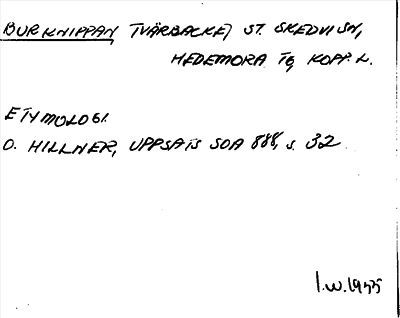 BURKNIPPAN TVÄRBACKE, ST. SKEDVI SN,
HEDEMORA TG, KOPP. L.
ETYMOLOGI.
O. HILLNER, UPPSATS SOA 888, S. 32.
I.W.